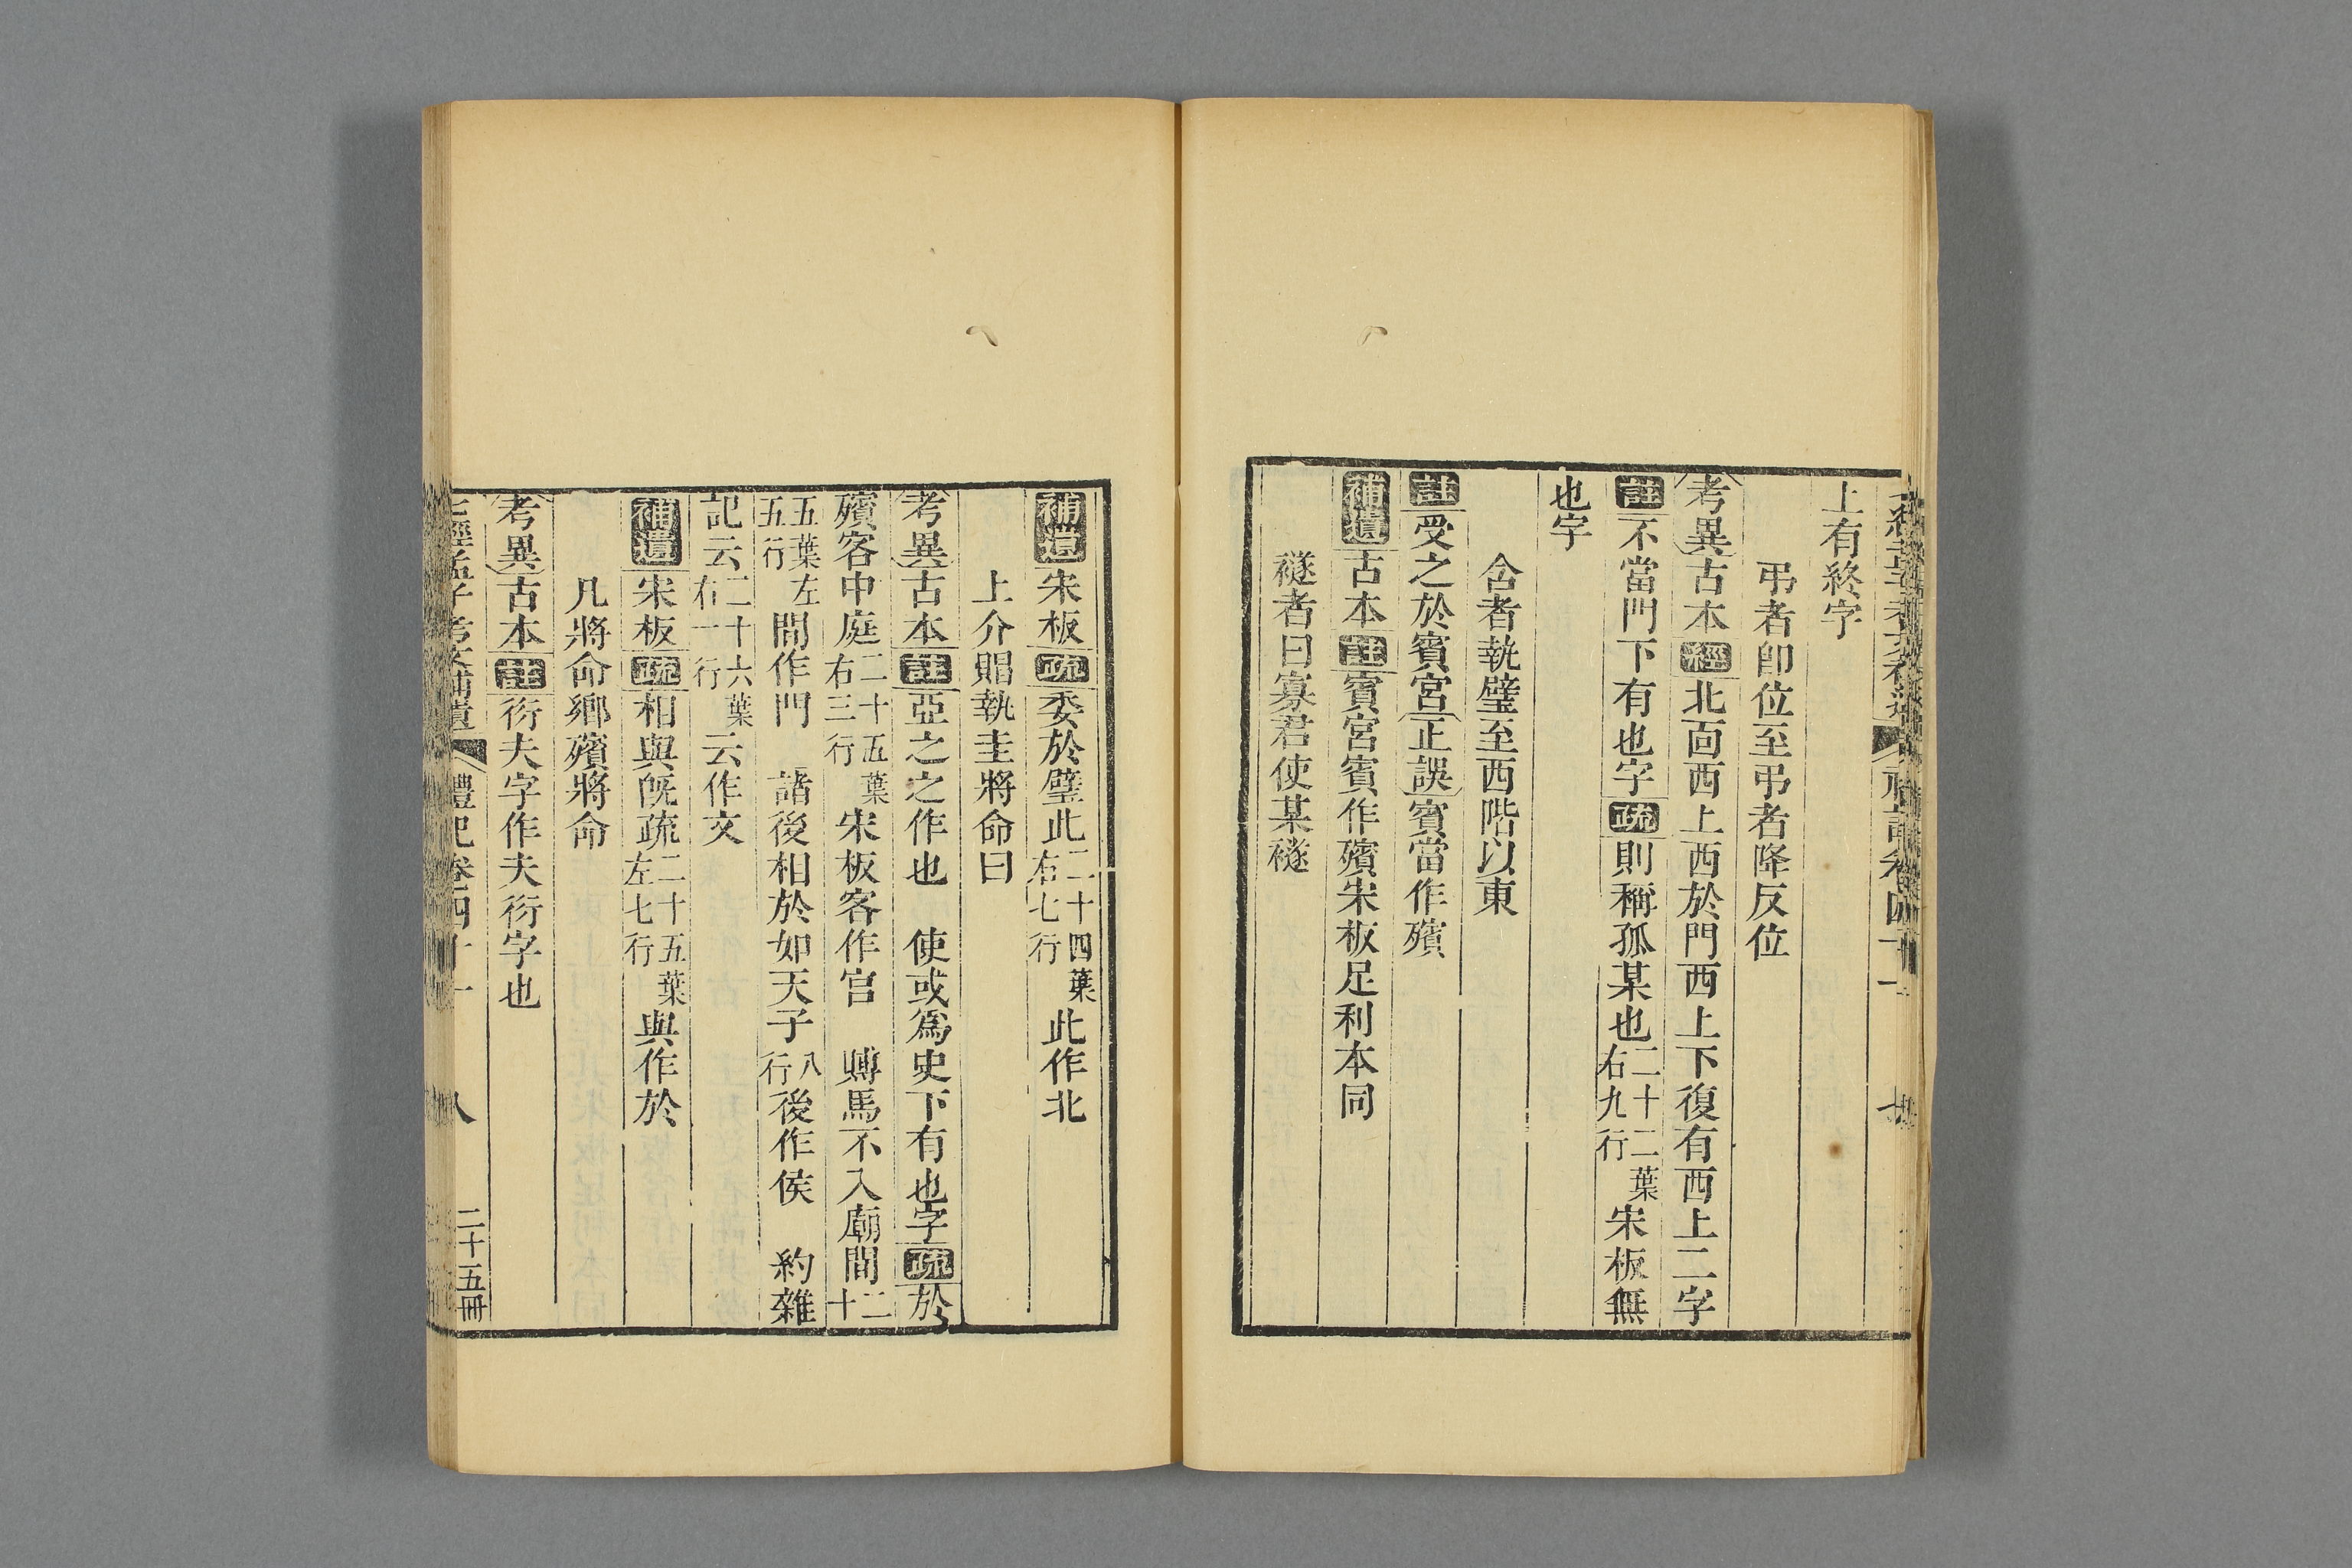 上有終字
弔者卽位至弔者降反位
考異古本經北面西上西於門西上下復有西上二字
註不當門下有也字疏則稱孤某也二十二葉右九行宋板無
也字
含者執璧至西階以東
註受之於賓宮正誤賓當作殯
補遺古本註賓宮賓作殯宋板足利本同
襚者曰寡君使某襚
補遺宋板疏委於璧此二十四葉右七行此作北
上介賵執圭將命曰
考異古本註亞之之作也　使或爲史下有也字疏於
殯客中庭二十五葉右三行宋板客作宮　賻馬不入廟間二十
五葉左五行間作門　諸後相於如天子八行後作侯　約雜
記云二十六葉右一行云作文
補遺宋板疏相與旣疏二十五葉左七行與作於
凡將命鄉殯將命
考異古本註衍夫字作夫衍字也
七經孟子考文補遺　禮記卷四十一　八　二十五冊